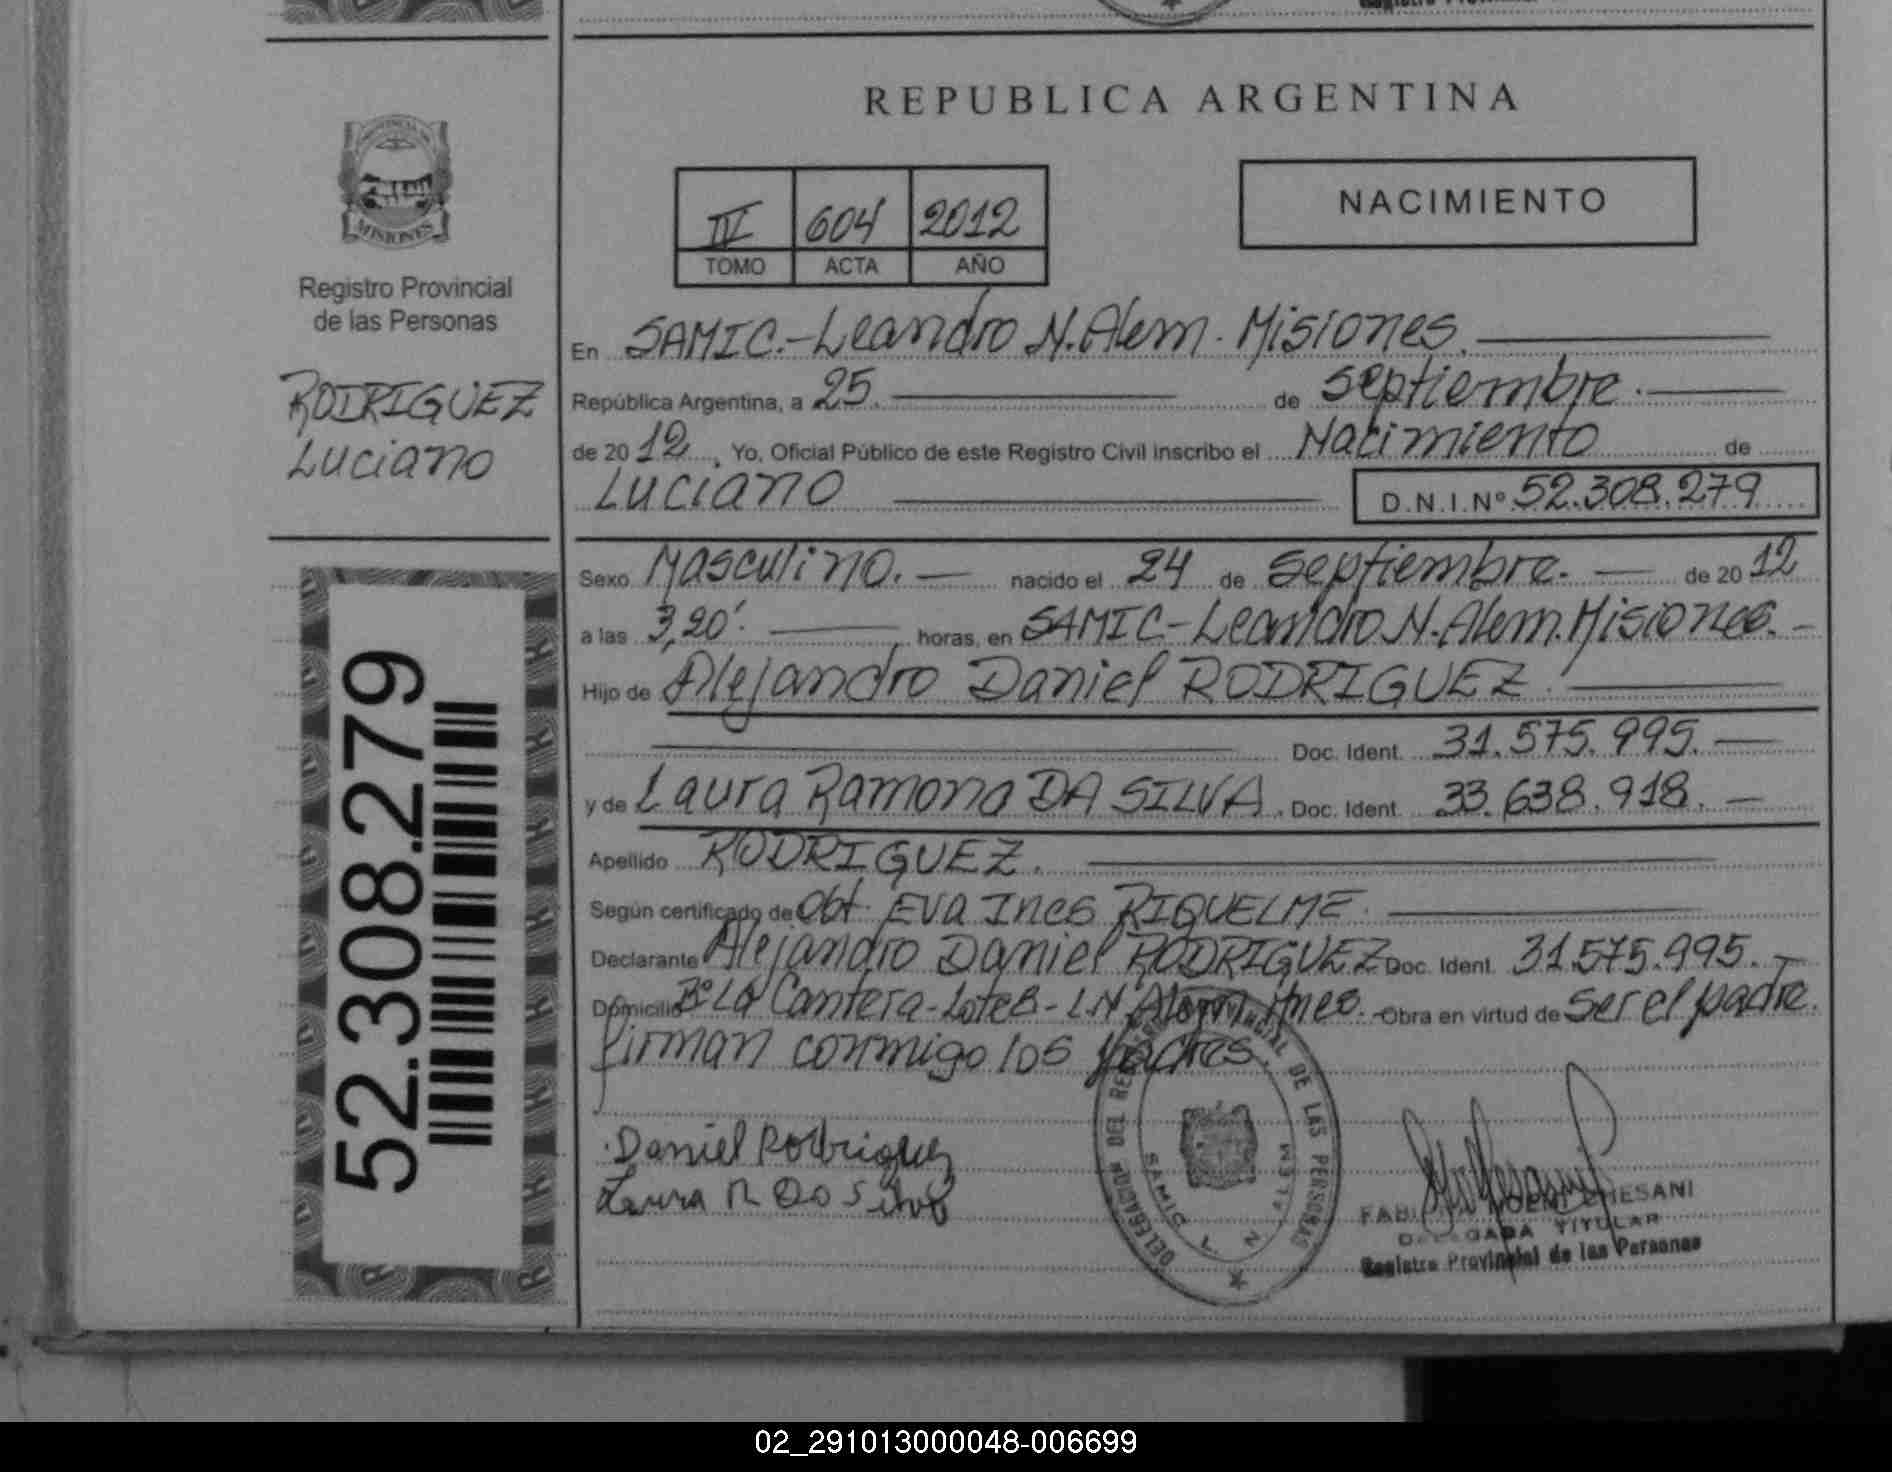 REPUBLICA ARGENTINA
NACIMIENTO
IV 604 2012
TOMO ACTA AÑO
PROVINCIA DE
MISIONES
Registro Provincial
de las Personas
RODRIGUEZ
Luciano
52.308.279
En SAMIC.-Leandro N. Alem. Misiones.
República Argentina, a 25. de Septiembre.
de 2012, Yo, Oficial Público de este Registro Civil inscribo el Nacimiento de
Luciano D.N.I.Nº 52.308.279
Sexo Masculino. nacido el 24 de Septiembre. de 2012
a las 3,20'. horas, en SAMIC-Leandro N. Alem. Misiones.
Hijo de Alejandro Daniel RODRIGUEZ.
Doc. Ident. 31.575.995.
y de Laura Ramona DA SILVA. Doc. Ident. 33.638.918.
Apellido RODRIGUEZ.
Según certificado de Obt. Eva Ines RIQUELME.
Declarante Alejandro Daniel RODRIGUEZ Doc. Ident. 31.575.995.
Domicilio Bº La Cantera-Lote8-L.N.Alem Mnes. Obra en virtud de Ser el padre.
firman conmigo los padres
Daniel Rodriguez
Laura R Da Silva
DELEGACION DEL REGISTRO PROVINCIAL DE LAS PERSONAS
SAMIC L. N. ALEM
CHESANI
DELEGADA TITULAR
Registro Provincial de las Personas
02_291013000048-006699